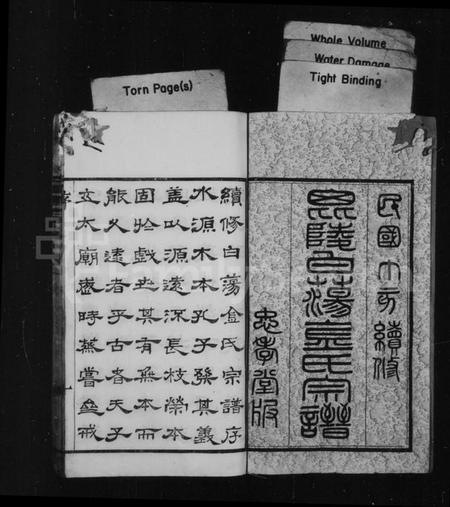 Torn Page(s)
Whole Volume
Water Damage
Tight Binding
民國十一年續修
毘陵白蕩金氏宗譜
忠孝堂版
續修白蕩金氏宗譜序
水源木本孔子發其義
蓋以源遠流長枝榮本
固於戲世其有無本而
能久遠者乎古者天子
立太廟歲時蒸嘗